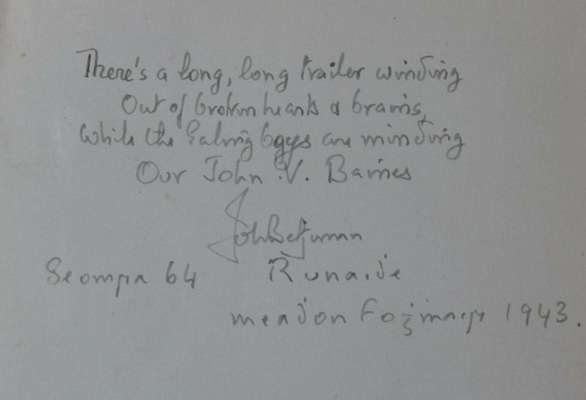 There's a long, long trailer winding
Out of broken hearts & brains,
While the Ealing boys are minding
Our John V. Baines
John Betjeman
Seomra 64 Runaide
meadon 1943.